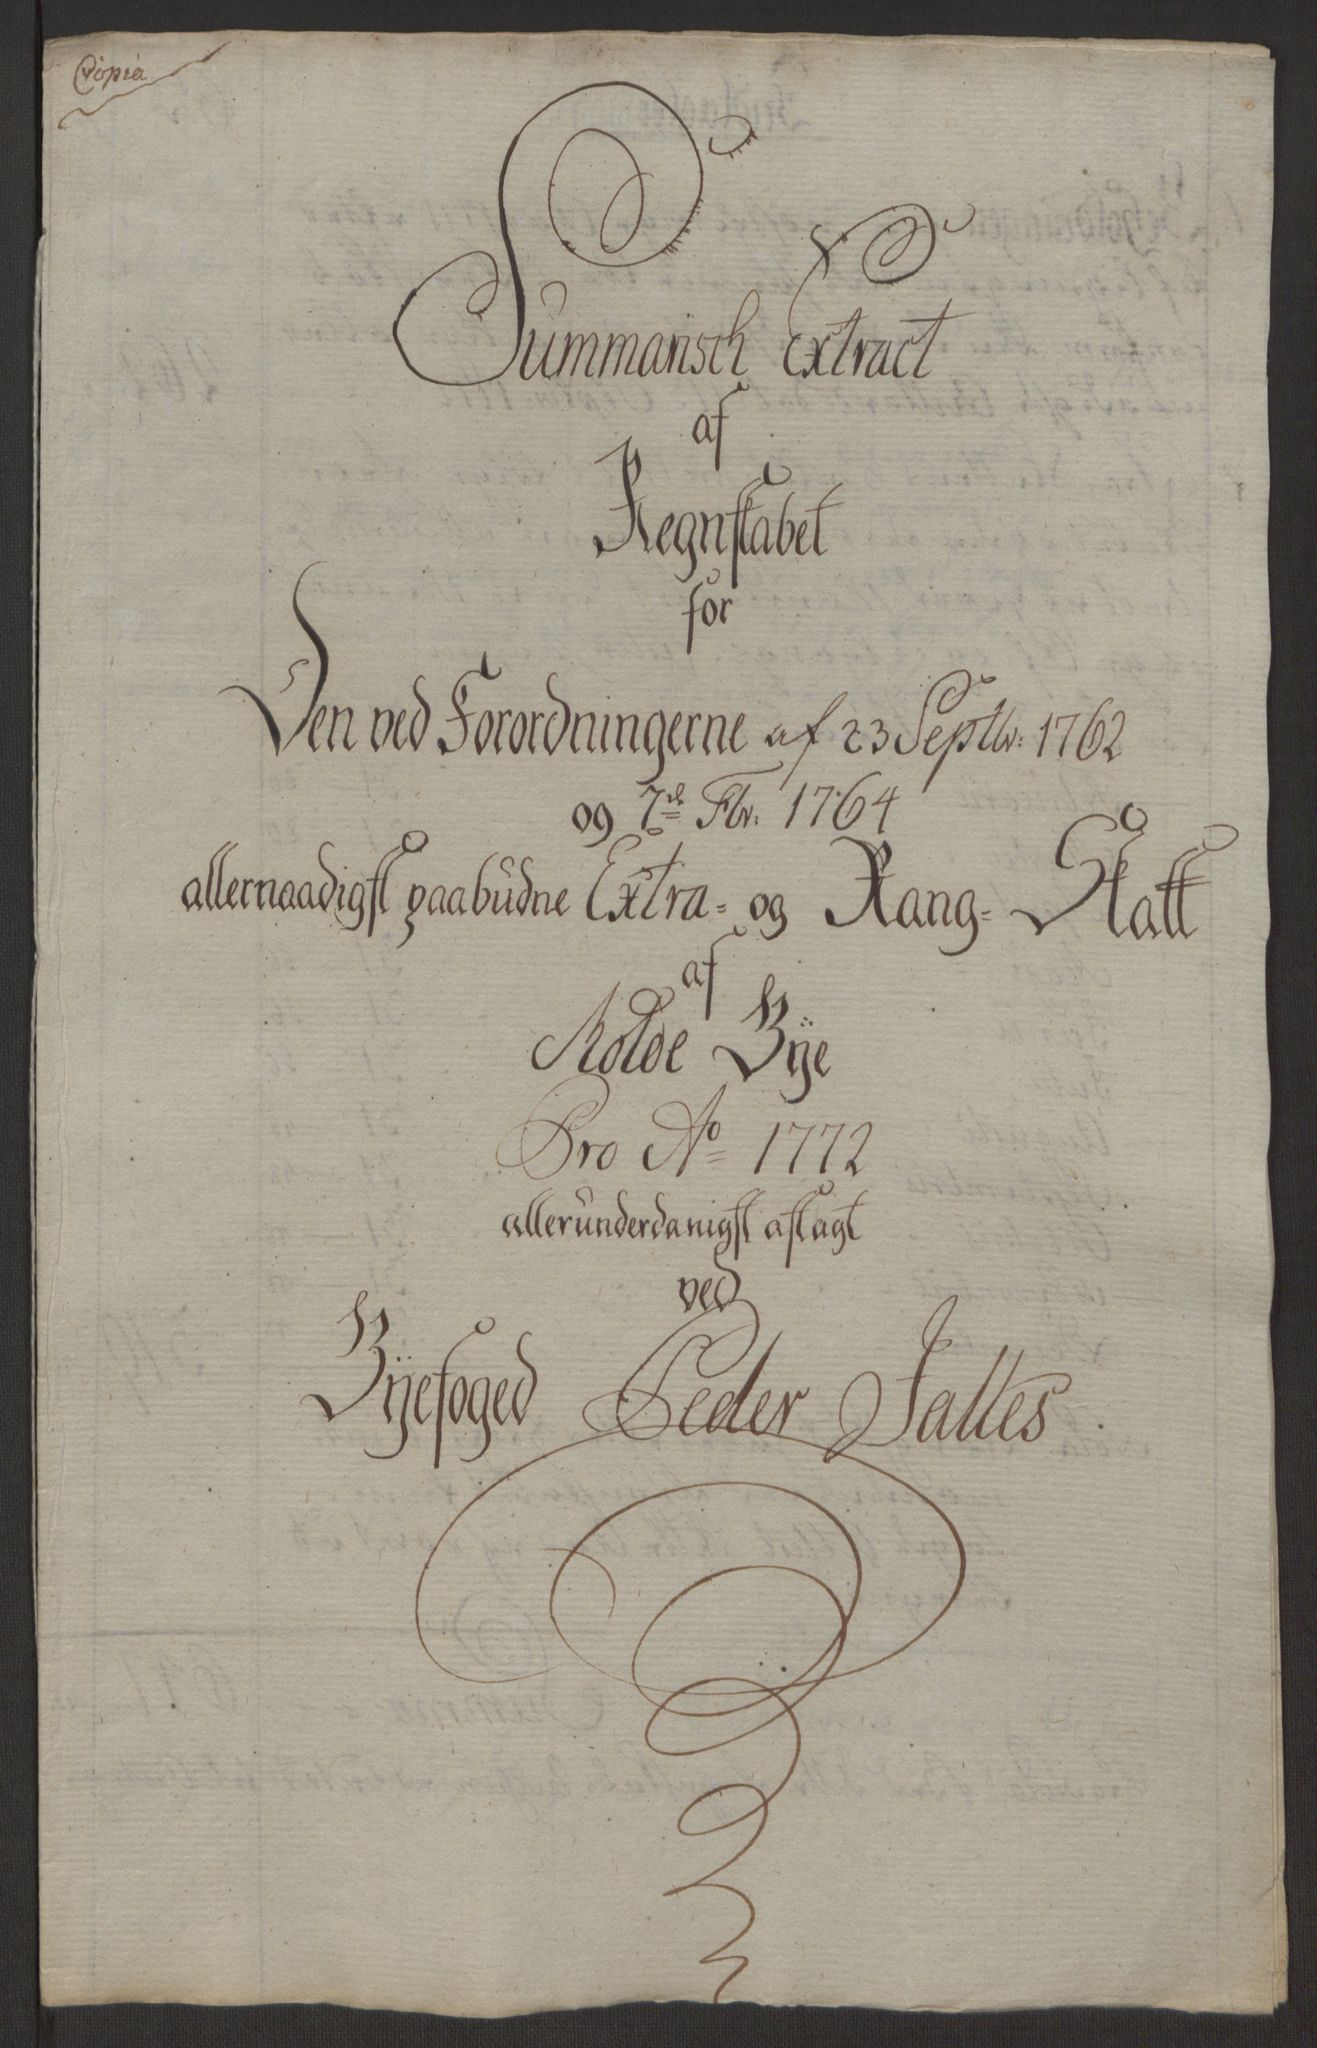 Copia
Summarisch Extract
af
Regnskabet
for
Den ved Forordningerne af 23 Septbr: 1762
og 7de Fbr: 1764
allernaadigst paabudne Extra- og Rang- Skatt
af
Molde Bÿe
Pro Ao 1772
allerunderdanigst aflagt
ved
Bÿefoged Peder Saltes